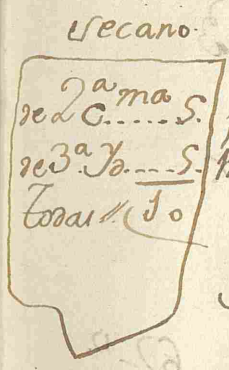 Secano.
de 2ª C.....5.
de 3ª Yd.....5.
Todas // 10